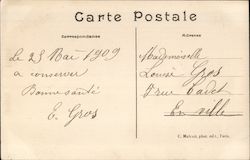 Carte Postale
Correspondance
Adresse
Le 25 Mai 1909
a conserver
Bonne santé
E. Gros
Mademoiselle
Louise Gros
7 rue Cadet
En ville
phot. édit., Paris.